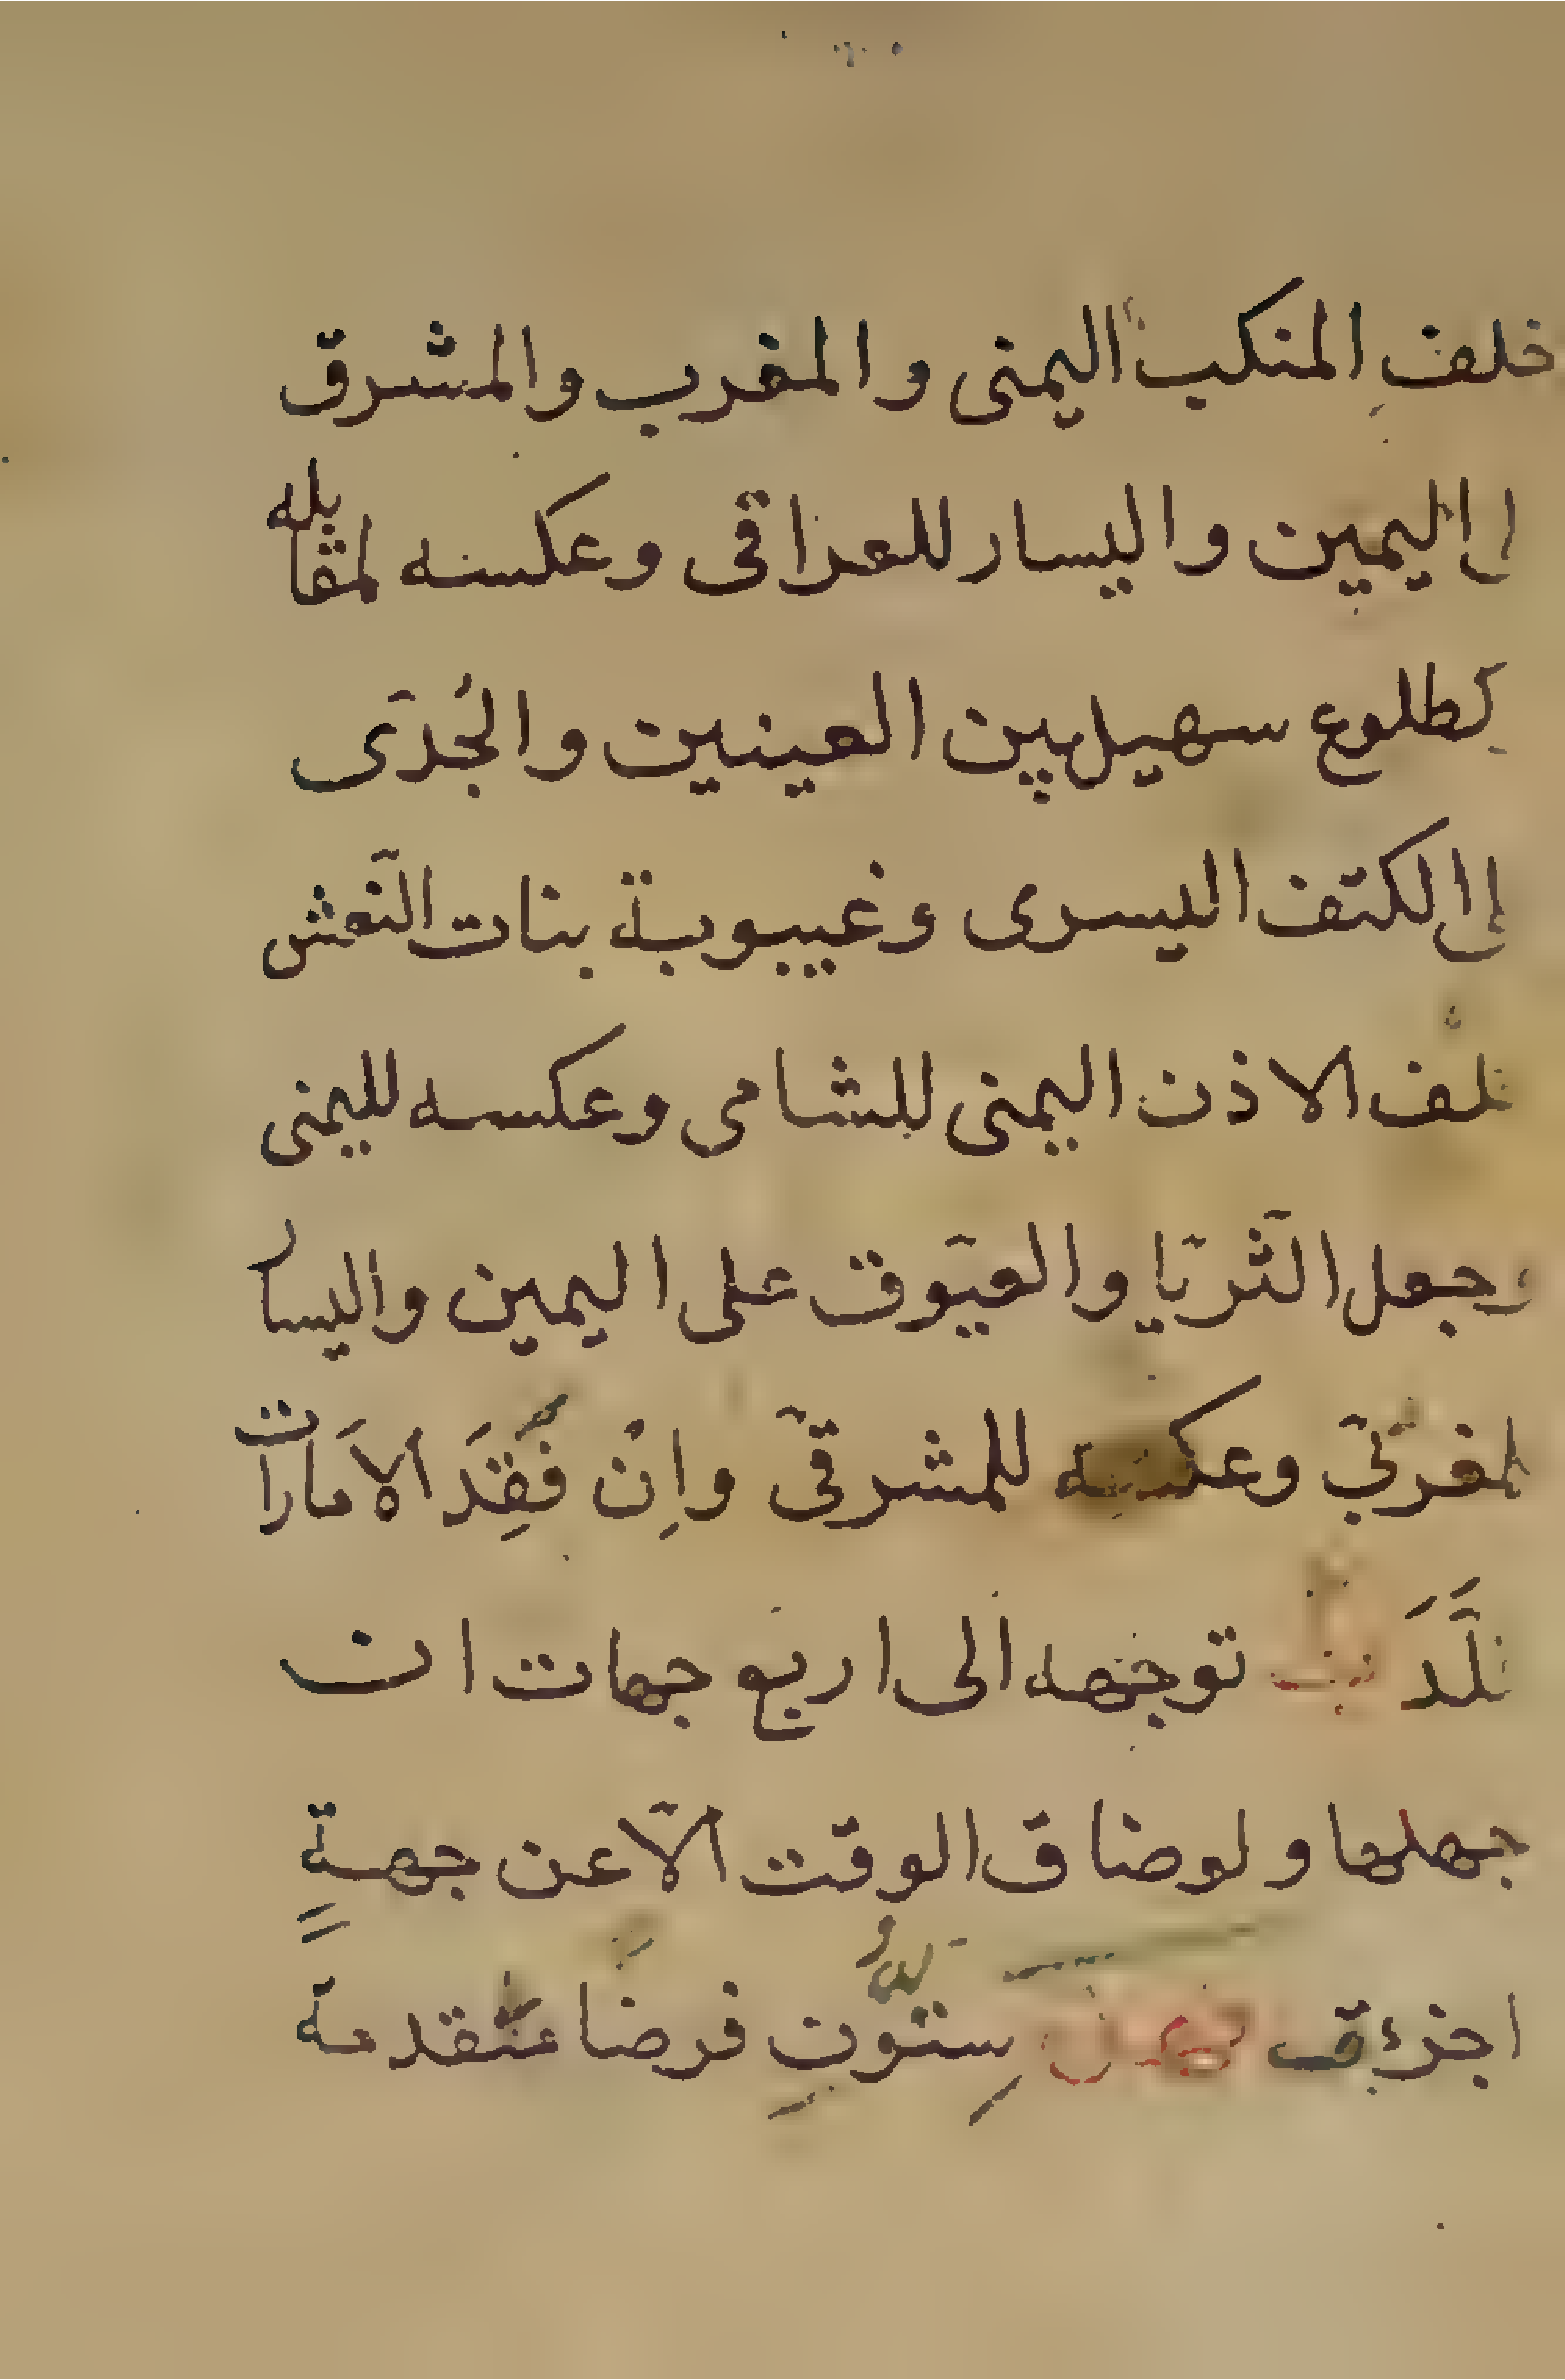 خلف المنكب اليمنى والمغرب والمشرق
اليمين واليسار للعراقى وعكسه لمقابله
كطلوع سهيل بين العينين والجُدَّى
الكتف اليسرى وغيبوبة بنات النّعش
خلف الاذن اليمنى للشامى وعكسه لليمنى
وجعل الثّريّا والعيّوق على اليمين واليسار
لمغربّى وعكسه للمشرقّى وانْ فَقِدَ الاَمارات
قلَّدَ توجهه الى اربع جهات ان
جهلها ولو ضاق الوقت الّا عن جهةٍ
اجزئت ستّون فرضا متقدمة